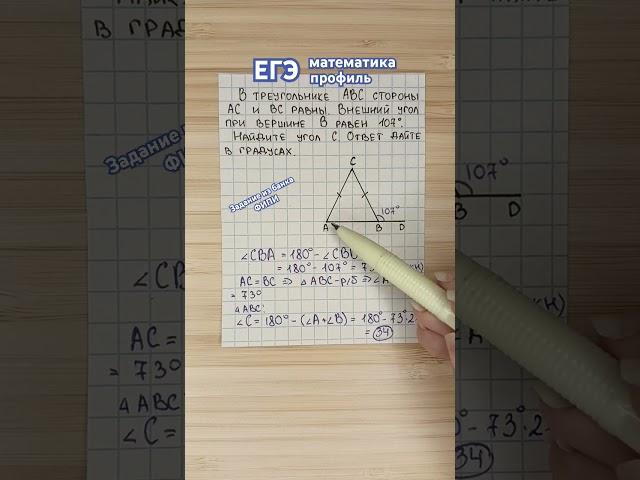 ЕГЭ математика
профиль
В ТРЕУГОЛЬНИКЕ ABC СТОРОНЫ
AC И BC РАВНЫ. ВНЕШНИЙ УГОЛ
ПРИ ВЕРШИНЕ B РАВЕН 107°.
НАЙДИТЕ УГОЛ C. ОТВЕТ ДАЙТЕ
В ГРАДУСАХ.
Задание из банка
ФИПИ
C
107°
A B D
∠CBA = 180° - ∠CBD
= 180° - 107° = 73°
AC = BC ⇒ △ABC - р/б ⇒ ∠A
= 73°
△ABC:
∠C = 180° - (∠A + ∠B) = 180° - 73°·2
= 34
В ГРАДУС
Задание из
ФИПИ
∠CBA
AC =
= 73°
△ABC
∠C =
107°
B D
кн)
- 73°·2
34